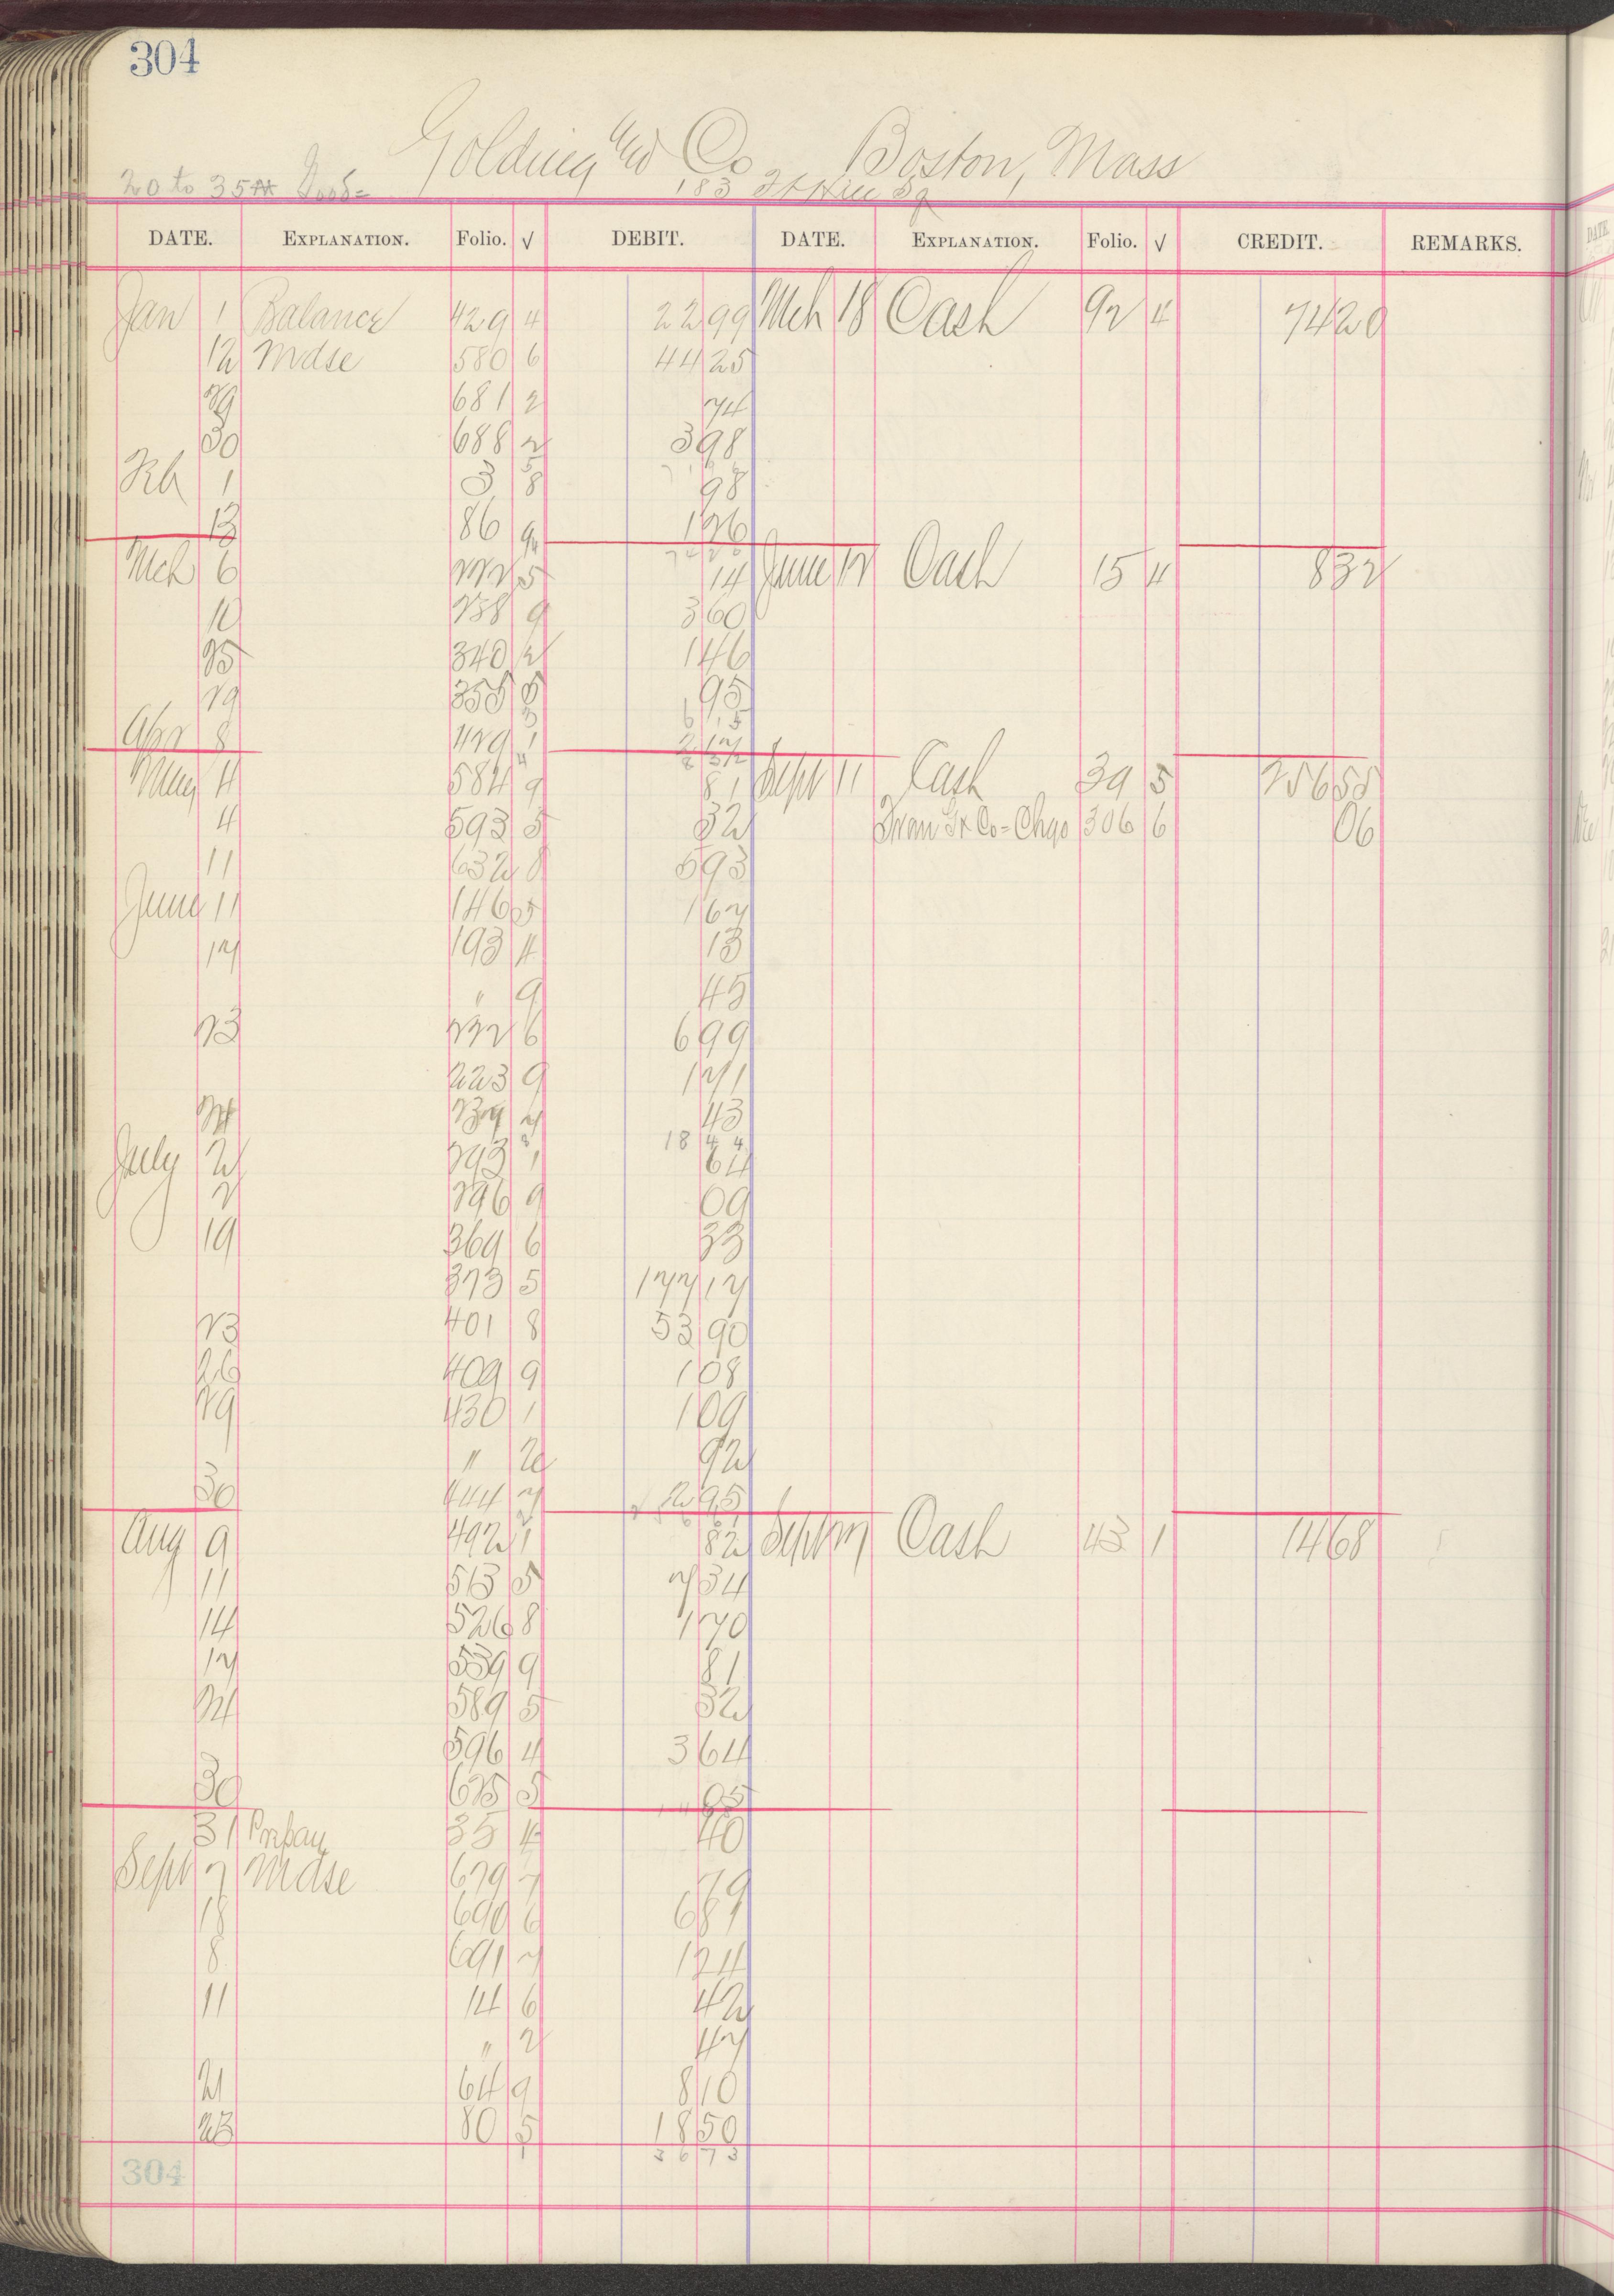 304
Golding and Co Boston, Mass
20 to 35
183
DATE. EXPLANATION. Folio. √ DEBIT. DATE. EXPLANATION. Folio. √ CREDIT. REMARKS.
Jan 1 Balance 429 4 22 99 Mch 18 Cash 92 4 74 20
12 Mdse 580 6 44 25
29 681 2 74
30 688 2 3 98
Feb 1 3 8 98
13 86 9 1 26
Mch 6 222 5 14 June 12 Cash 15 4 8 32
10 258 9 3 60
25 340 2 1 46
29 358 8 95
Apr 8 429 1 2 17
May 4 584 9 81 Sept 11 Cash 39 5 256 55
4 593 5 32 Tran Co - Chgo 306 6 06
11 632 8 5 93
June 11 146 5 1 67
17 193 4 13
" 9 45
23 222 6 6 99
223 9 1 71
24 237 7 43
18 44
July 2 293 1 64
2 296 9 09
19 369 6 33
373 5 177 17
23 401 8 53 90
26 409 9 1 08
29 430 1 1 09
" 2 92
30 444 7 2 95
Aug 9 492 1 82 Sept 17 Cash 43 1 14 68
11 513 5 7 34
14 526 8 1 70
17 539 9 81
24 589 5 32
596 4 3 64
30 625 5 05
31 Prepay 35 4 40
Sept 7 Mdse 679 7 79
18 690 6 6 81
8 691 7 1 24
11 14 6 42
" 2 47
21 64 9 8 10
23 80 5 18 50
36 73
304